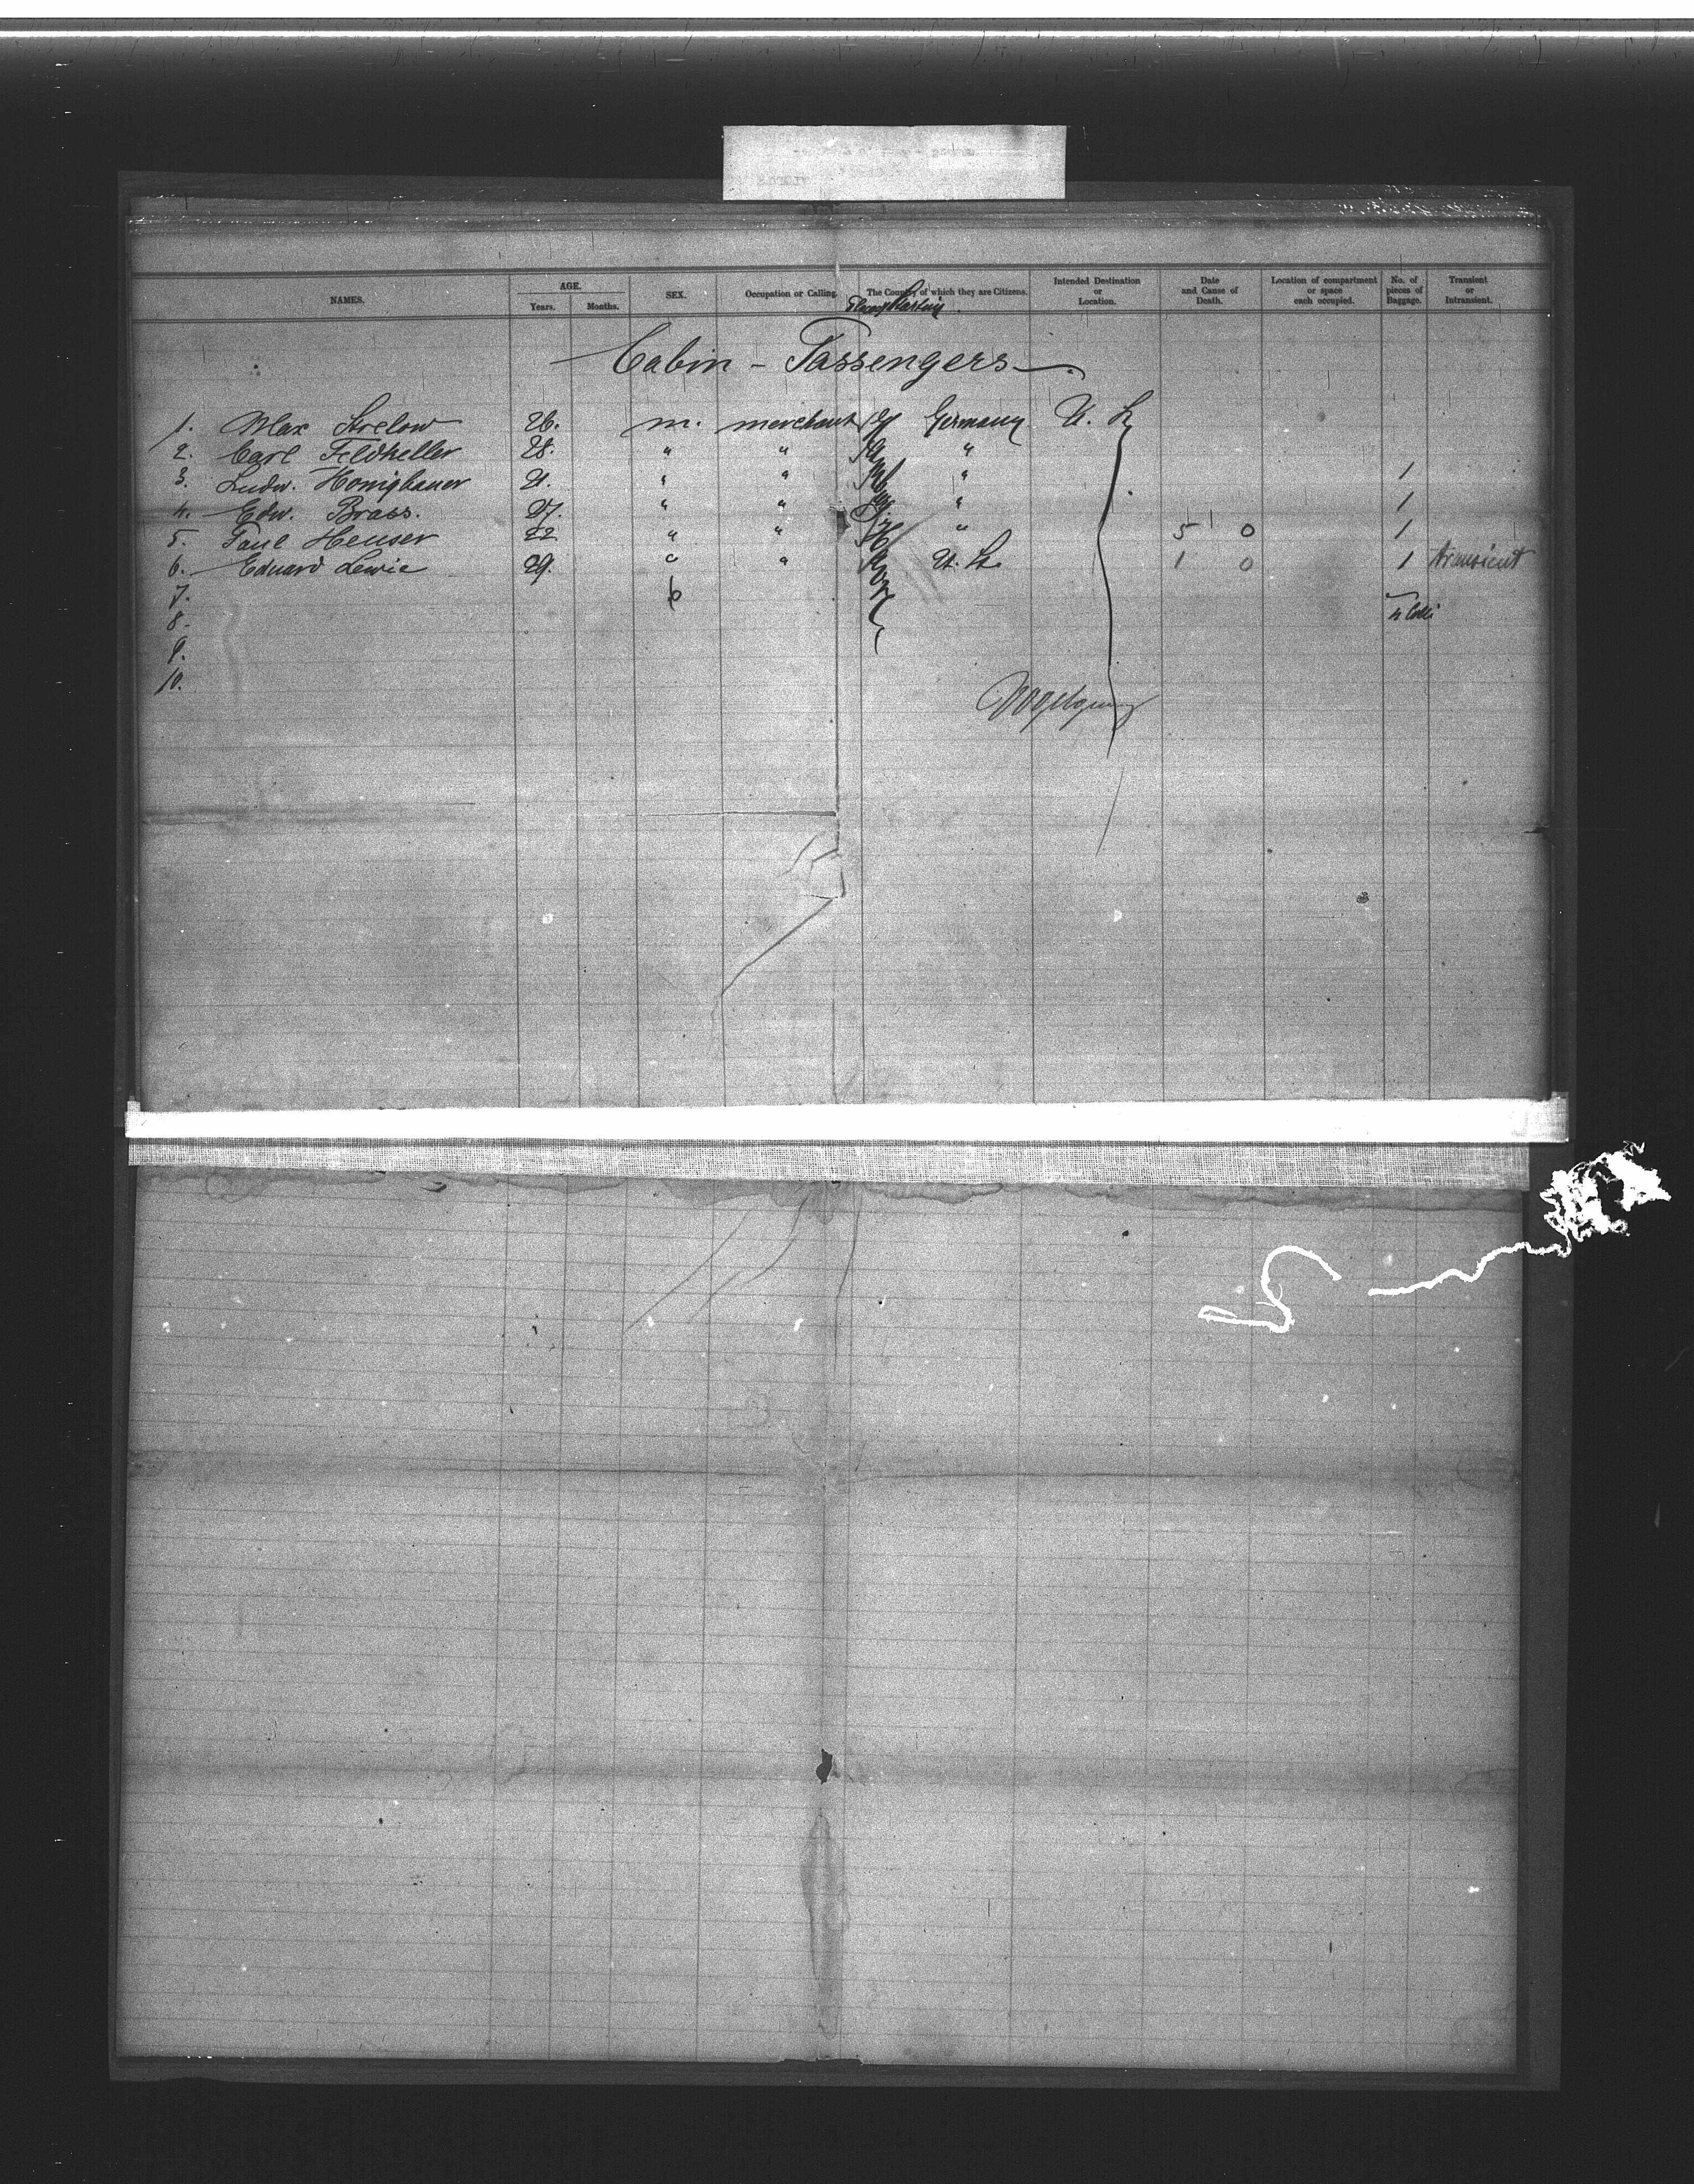 NAMES. AGE. Years. Months. SEX. Occupation or Calling. The Country of which they are Citizens. Intended Destination or Location. Date and Cause of Death. Location of compartment or space each occupied. No. of pieces of Baggage. Transient or Intransient.
Cabin - Passengers
1. Max 26. m. merchant Germany U. St.
2. Carl Feldheller 28. " " "
3. Ludw. Honigbauer " " " 1
4. Edw. Brass. 27. " " " 1
5. Paul Heuser 22 " " " 5 0 1
6. Eduard Lewie 29. " " U. St. 1 0 1 transient
7. 6
8. 4 Colli
9.
10.